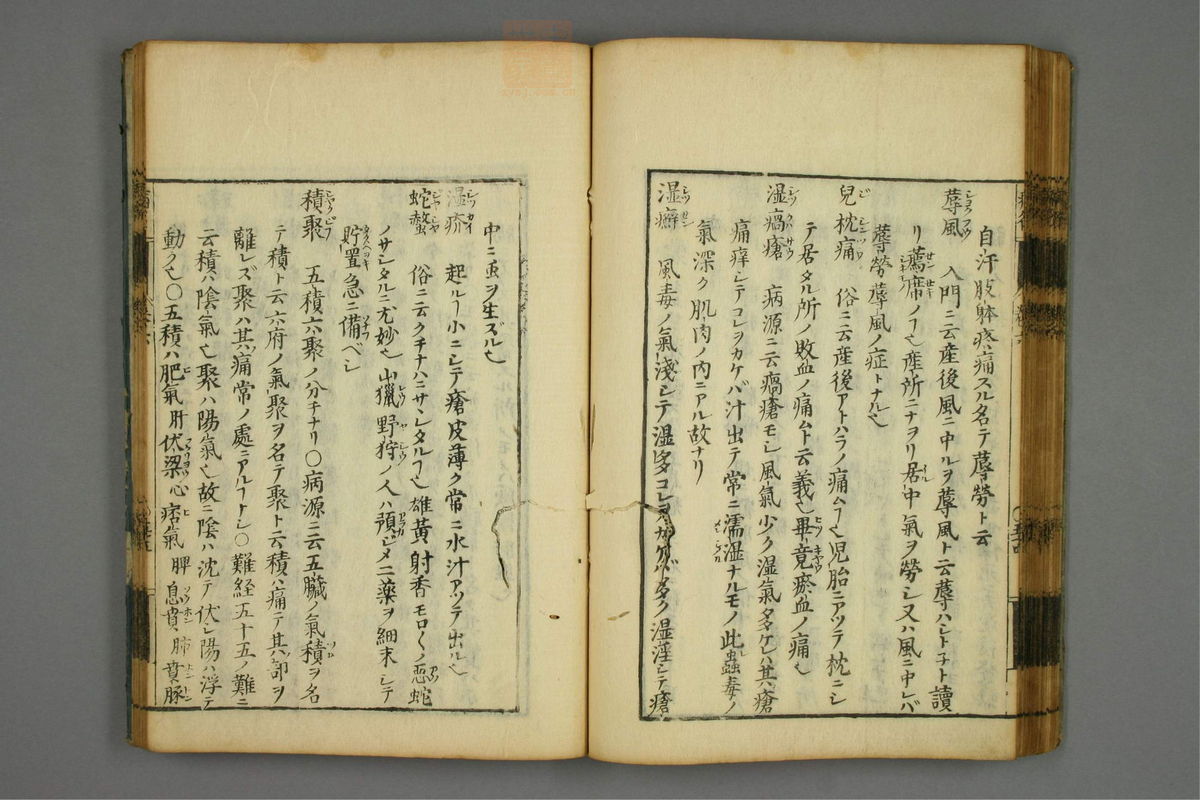 自汗肢躰疼痛スル名テ蓐勞ト云
蓐風 入門ニ云産後風ニ中ルヲ蓐風ト云蓐ハシトネト讀
リ薦席ノヿ也産所ニナヲリ居中氣ヲ勞シ又ハ風ニ中レバ
蓐勞蓐風ノ症トナル也
兒枕痛 俗ニ云産後アトハラノ痛ムヿ也児胎ニアツテ枕ニシ
テ居タル所ノ敗血ノ痛ムト云義也畢竟瘀血ノ痛也
湿瘑瘡 病源ニ云瘑瘡モシ風氣少ク湿氣多ケレハ其瘡
痛痒シテコレヲカケバ汁出テ常ニ濡湿ナルモノ此蟲毒ノ
氣深ク肌肉ノ内ニアル故ナリ
湿癬 風毒ノ氣淺シテ湿多コレヲカケバ多ク湿淫シテ瘡
中ニ虫ヲ生ズル也
湿疥 起ルヿ小ニシテ瘡皮薄ク常ニ水汁アツテ出ル也
蛇螫 俗ニ云クチナハニサヽレタルヿ也雄黃射香モロ〱ノ惡蛇
ノサシタルニ尤妙也山獵野狩ノ人ハ預ジメ二薬ヲ細末シテ
貯置急ニ備ベシ
積聚 五積六聚ノ分チナリ○病源ニ云五臓ノ氣積ヲ名
テ積ト云六府ノ氣聚ヲ名テ聚ト云積ハ痛テ其部ヲ
離レズ聚ハ其痛常ノ處ニアルヿナシ○難経五十五ノ難ニ
云積ハ陰氣也聚ハ陽氣也故ニ陰ハ沈テ伏シ陽ハ浮テ
動ク也○五積ハ肥氣肝伏梁心痞氣脾息賁肺賁豚